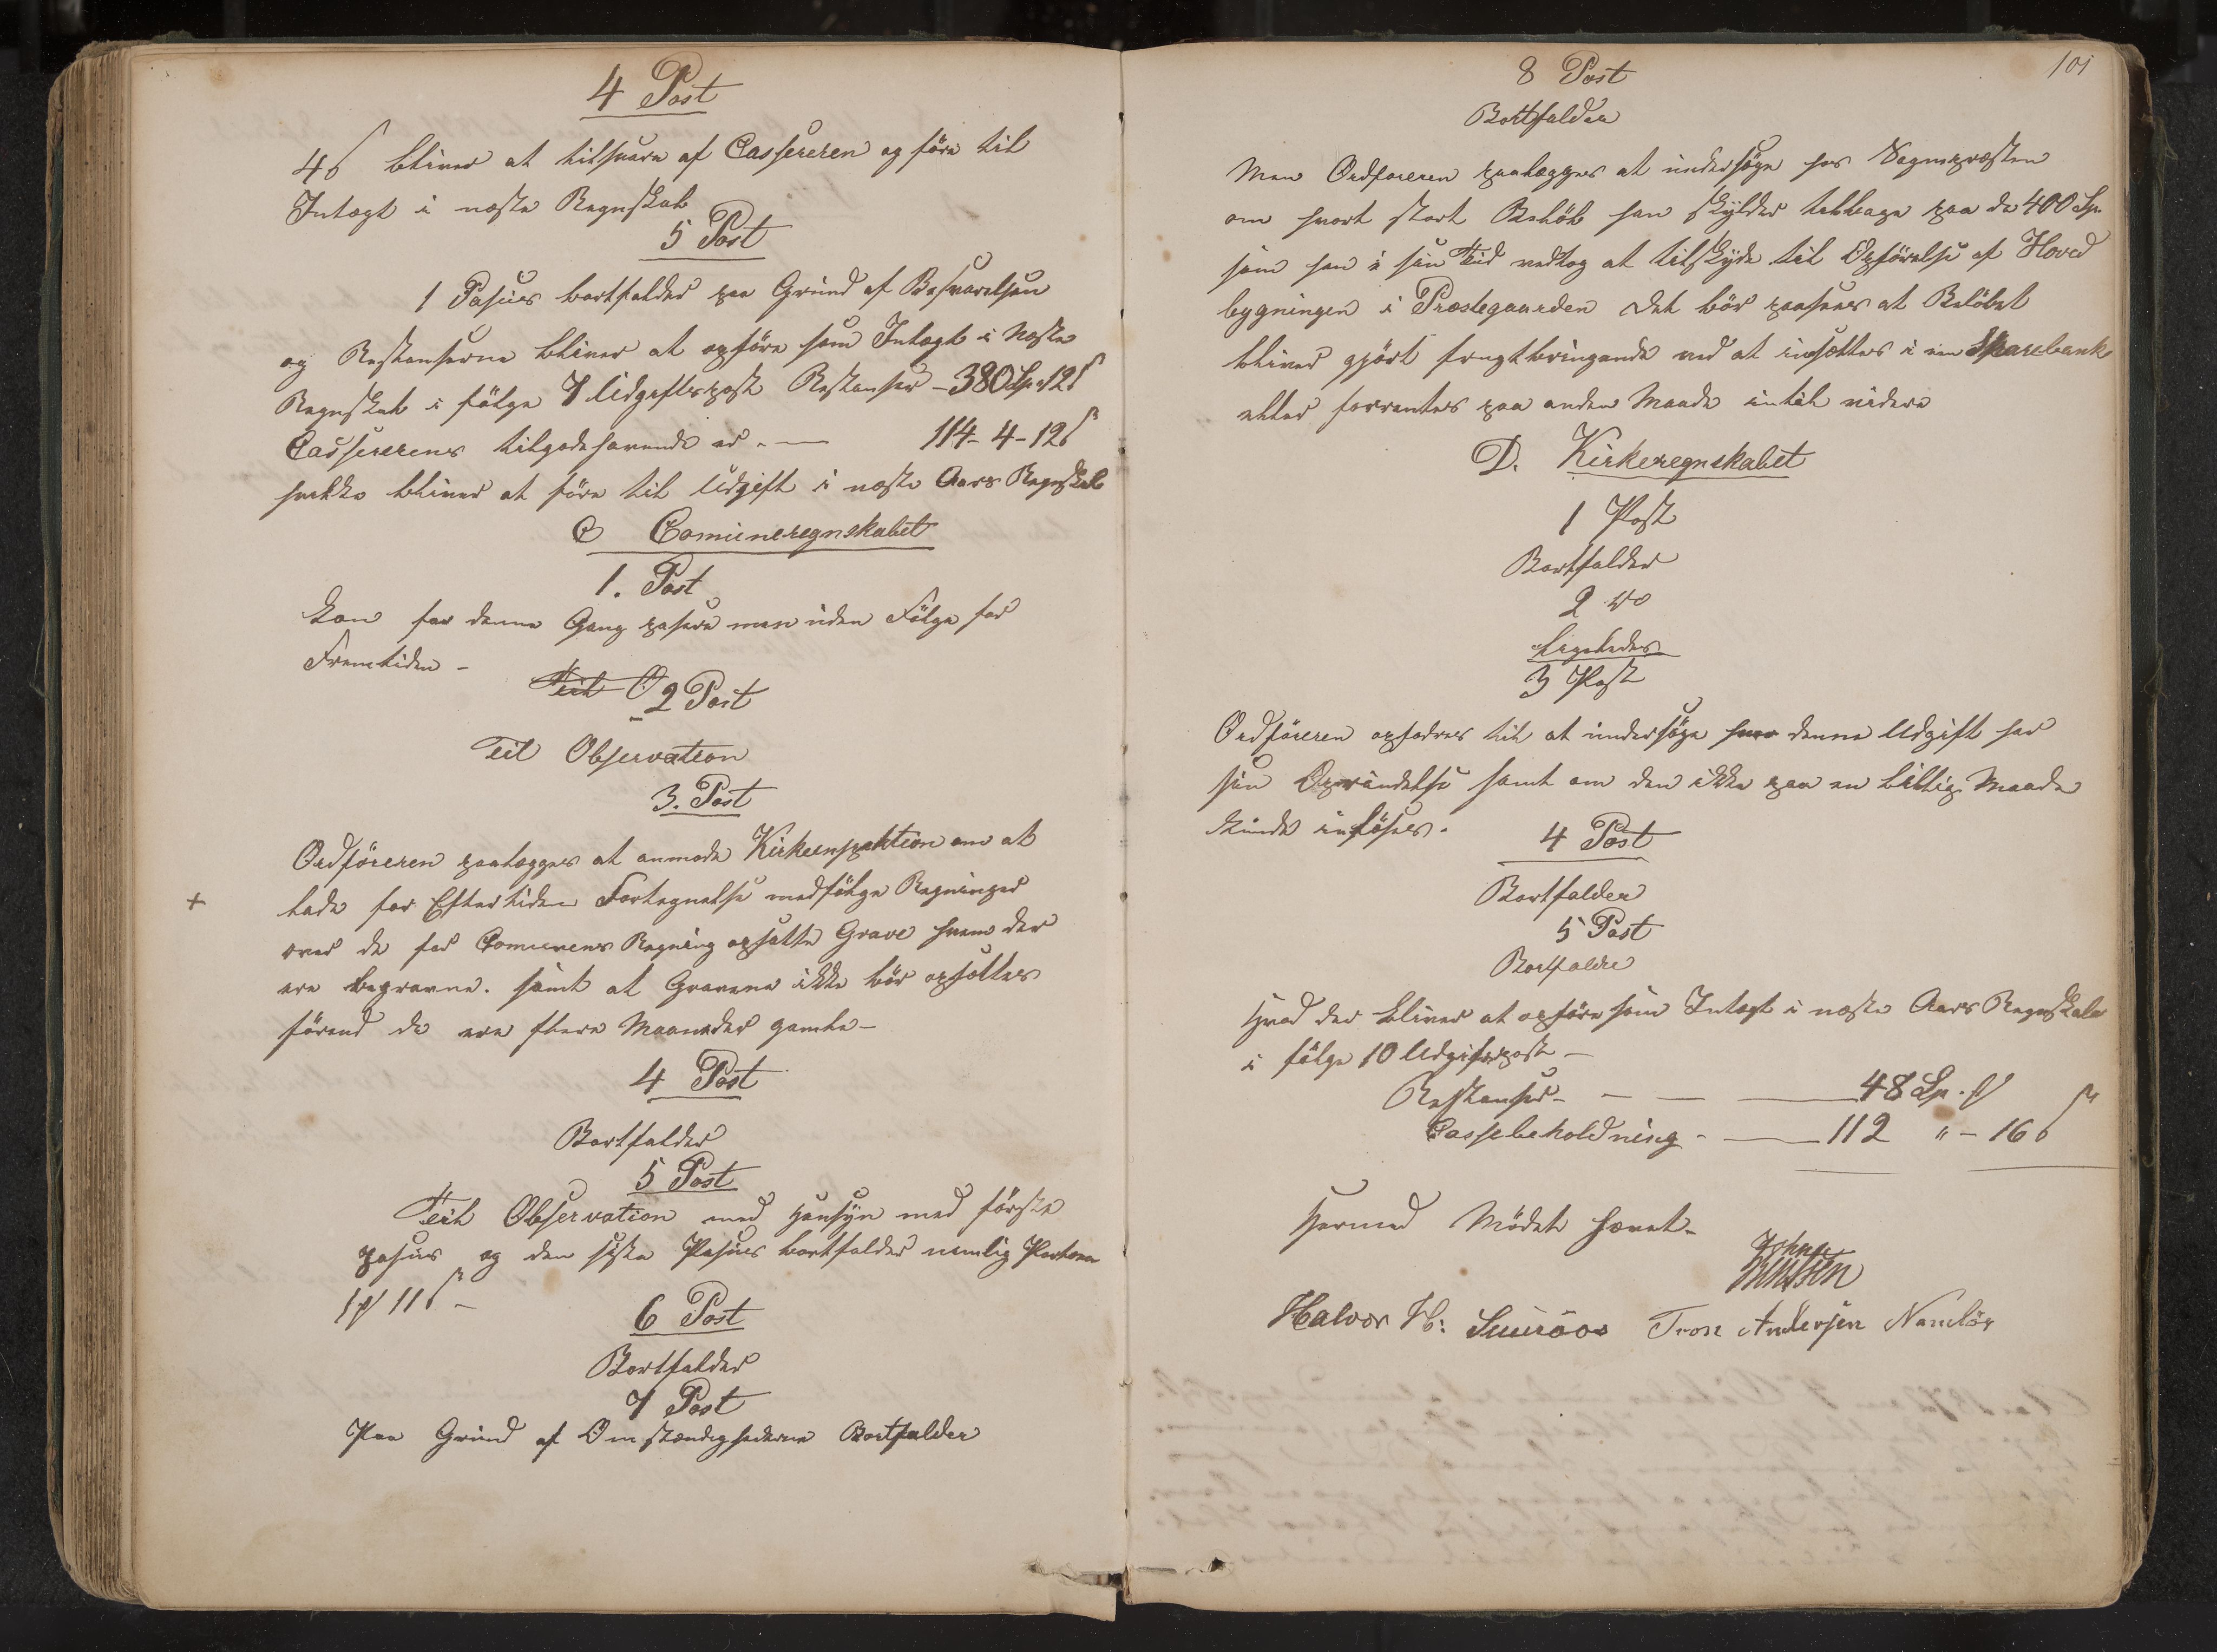 4 Post
4 ß bliver at tilsvare af Cassereren og före til
Indtægt i næste Regnskab
5 Post
1 Pasus bortfalder paa Grund af Besvarelsen
og Restanserne bliver at opföre som Intægt i Næste
Regnskab i fölge 7 Udgiftspost Restanser - 380 Sp 12 ß
Cassererens tilgodehavende er - — 114 - 4 - 12 ß
hvilke bliver at före til Udgift i næste Aars Regnskab
C Comuneregnskabet
1. Post
Kan for denne Gang pasere men uden Fölge for
Fremtiden -
Til O 2 Post
Til Observation
3. Post
Ordföreren paalægges at anmode Kirkeinspektion om at
+ lade for Eftertiden Fortegnelse medfölge Regninger
over de for Comunens Regning opsatte Grave hvem der
ere begravne. samt at Gravene ikke bör opsættes
förend de ere flere Maaneder gamle -
4 Post
Bortfalder
5 Post
Til Observation med Hensyn med förste
pasus og den siste Pasus bortfalder nemlig Portoen
1 # 11 ß -
6 Post
Bortfalder
7 Post
Paa Grund af Omstændighederne Bortfalder
101
8 Post
Bortfalder
Men Ordföreren paalægges at undersöge hos Sognepræsten
om hvort stort Belöb han skylder tilbage paa de 400 Sp.
som han i sin Tid vedtog at tilskyde til Opförelse af Hoved
bygningen i Præstegaarden Det bör paasees at Belöbet
bliver gjört frugtbringende ved at insættes i en Sparebank
eller forrentes paa anden Maade intil videre
D. Kirkeregnskabet
1 Post
Bortfalder
2 do
Ligeledes
3 Post
Ordföreren opfodres til at undersöge hvor denne Udgift har
sin Oprindelse samt om den ikke paa en billig Maade
kunde inlöses.
4 Post
Bortfalder
5 Post
Bortfalder
Hvad der bliver at opföre som Intægt i næste Aars Regnskab
i fölge 10 Udgiftspost —
Restanser - — — — 48 Sp. #
Cassebeholdning - — 112 " - 16 ß
Hermed Mödet hævet -
John
Halvor H: Tron Andersen